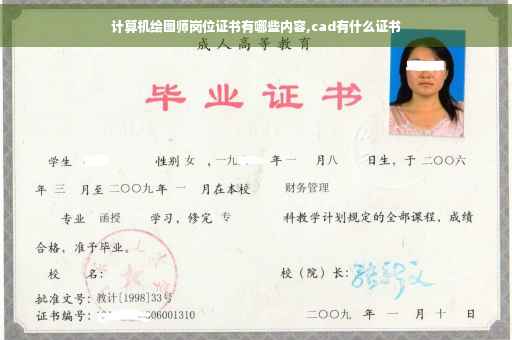 计算机绘图师岗位证书有哪些内容,cad有什么证书
成人高等教育
毕业证书
学生 性别 女 ,一九 年一 月八 日生，于二〇〇六
年 三 月至二〇〇九年 一 月在本校 财务管理
专业 函授 学习，修完 专 科教学计划规定的全部课程，成绩
合格，准予毕业。
校 名： 校（院）长：
批准文号：教计[1998]33号
证书编号： 06001310 二〇〇九 年 一 月 十 日